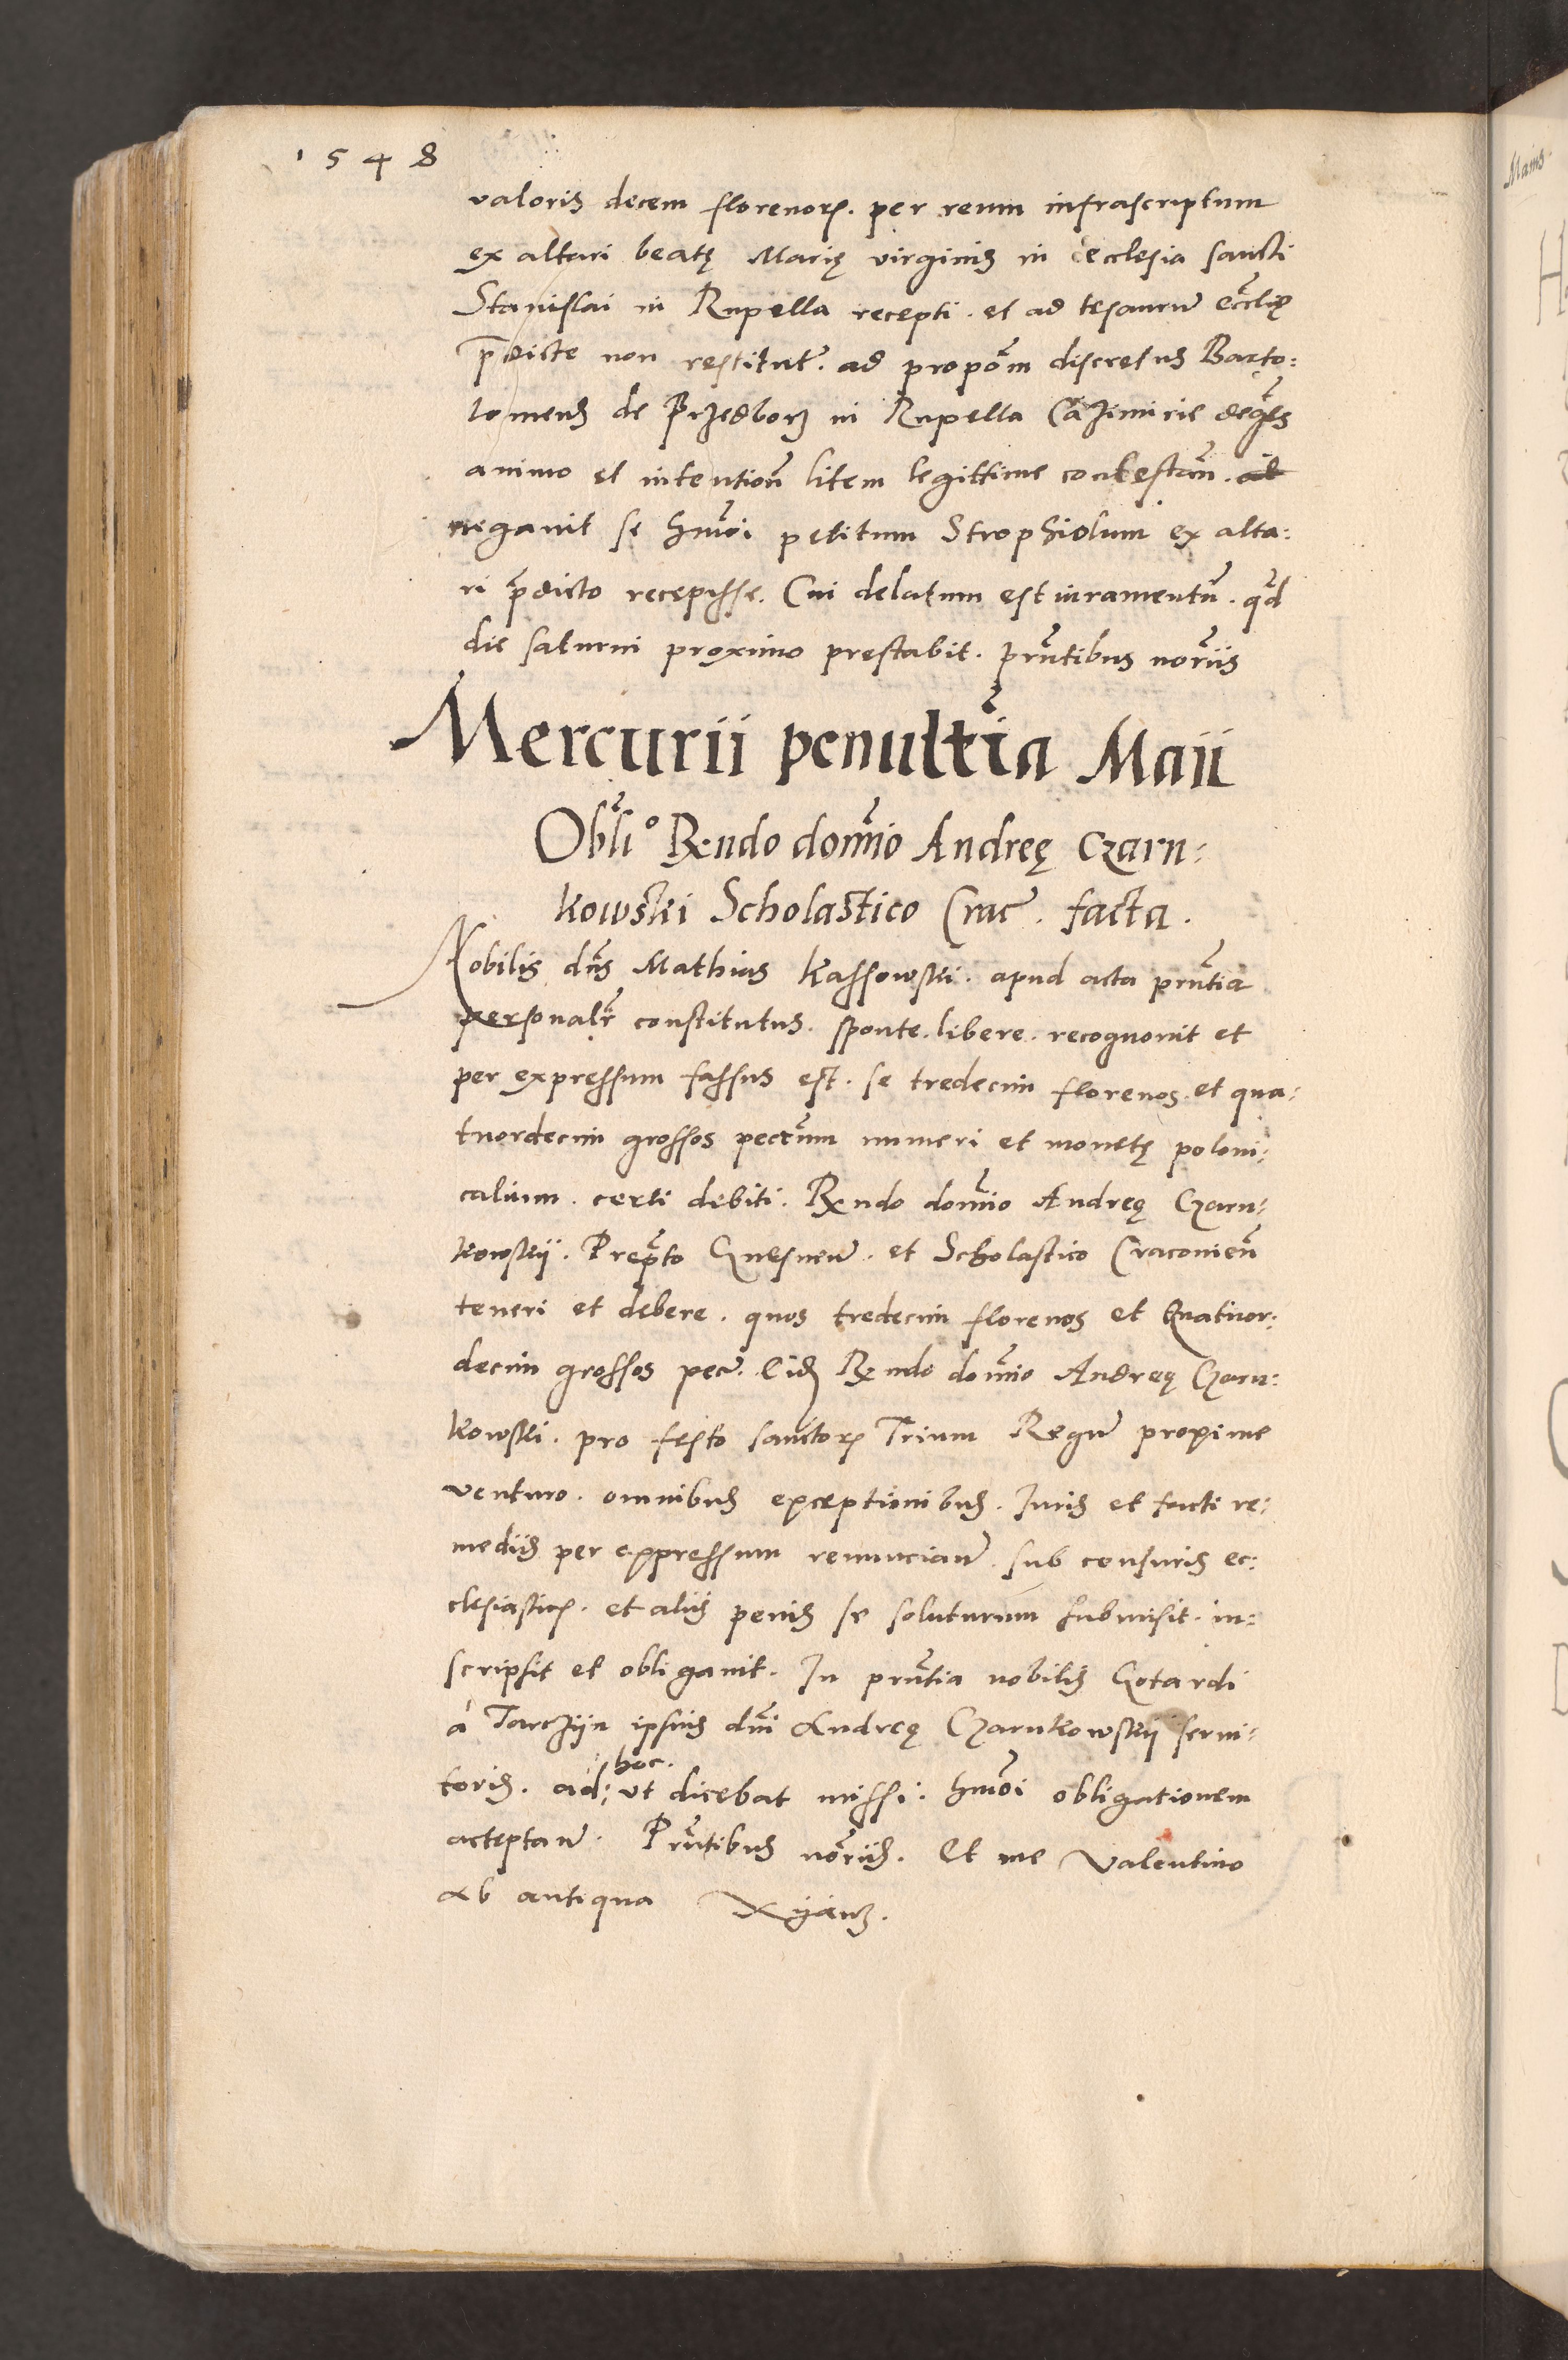 1548
valoris decem florenorꝝ. per reum infrascriptum
ex altari beatę Marię virginis in ecclesia sancti
Stanislai in Rupella recepti. et ad tesaurũ ecc̃lię
p̃dicte non restitut̃. ad propõm discretus Barto:
lomeus de Przedborz in Rupella Cazimirie degẽs
animo et intentioñ litem legittime contestañ.
negavit se hmõi petitum Strophiolum ex alta:
ri p̃dicto recepisse. Cui delatum est iuramentũ. qđ
die saturni proximo prestabit. pñtibus nor̃iis
Mercurii penultĩa Maii
Obl̃i° Rendo domĩo Andreę Czarn:
kowski Scholastico Crac̃. facta.
Nobilis dñs Mathias Kassowski. apud acta pñtia
personalr̃ constitutus. sponte. libere. recognovit et
per expressum fassus est. se tredecim florenos. et qua:
tuordecim grossos pecc̃um numeri et monetę poloni:
calium. certi debiti. Rendo domĩo Andreę Czarn:
kowskij. Prep̃to Gnesneñ. et Scholastico Cracovieñ
teneri et debere. quos tredecim florenos et Quatuor:
decim grossos pec̃. Eidꝫ Rendo domĩo Andreę Czarn:
kowski. pro festo sanctorꝝ Trium Regũ proxime
venturo. omnibus exceptionibus. Juris et facti re:
mediis per expressum renuncian̄. sub censuris ec:
clesiasticꝭ. et aliis penis se soluturum submisit. in:
scripsit et obligavit. In pñtia nobilis Gotardi
à Tarczijn ipsius dñi Andreę Czarnkowskij servi:
toris. ad hoc. ut dicebat missi. hmõi obligationem
acceptan̄. Pñtibus nor̃iis. Et me Valentino
ab antiqua